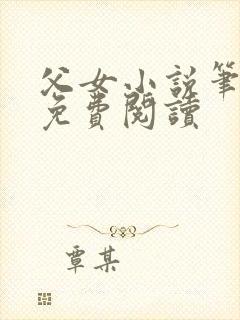 父女小説筆
免費閱讀
覃某